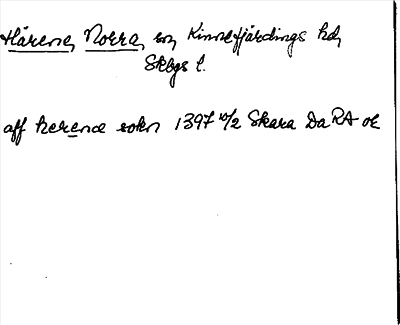 Härene, Norra, sn, Kinnefjärdings hd,
Skbgs l.
aff herene sokn 1397 10/2 Skara Da RA or